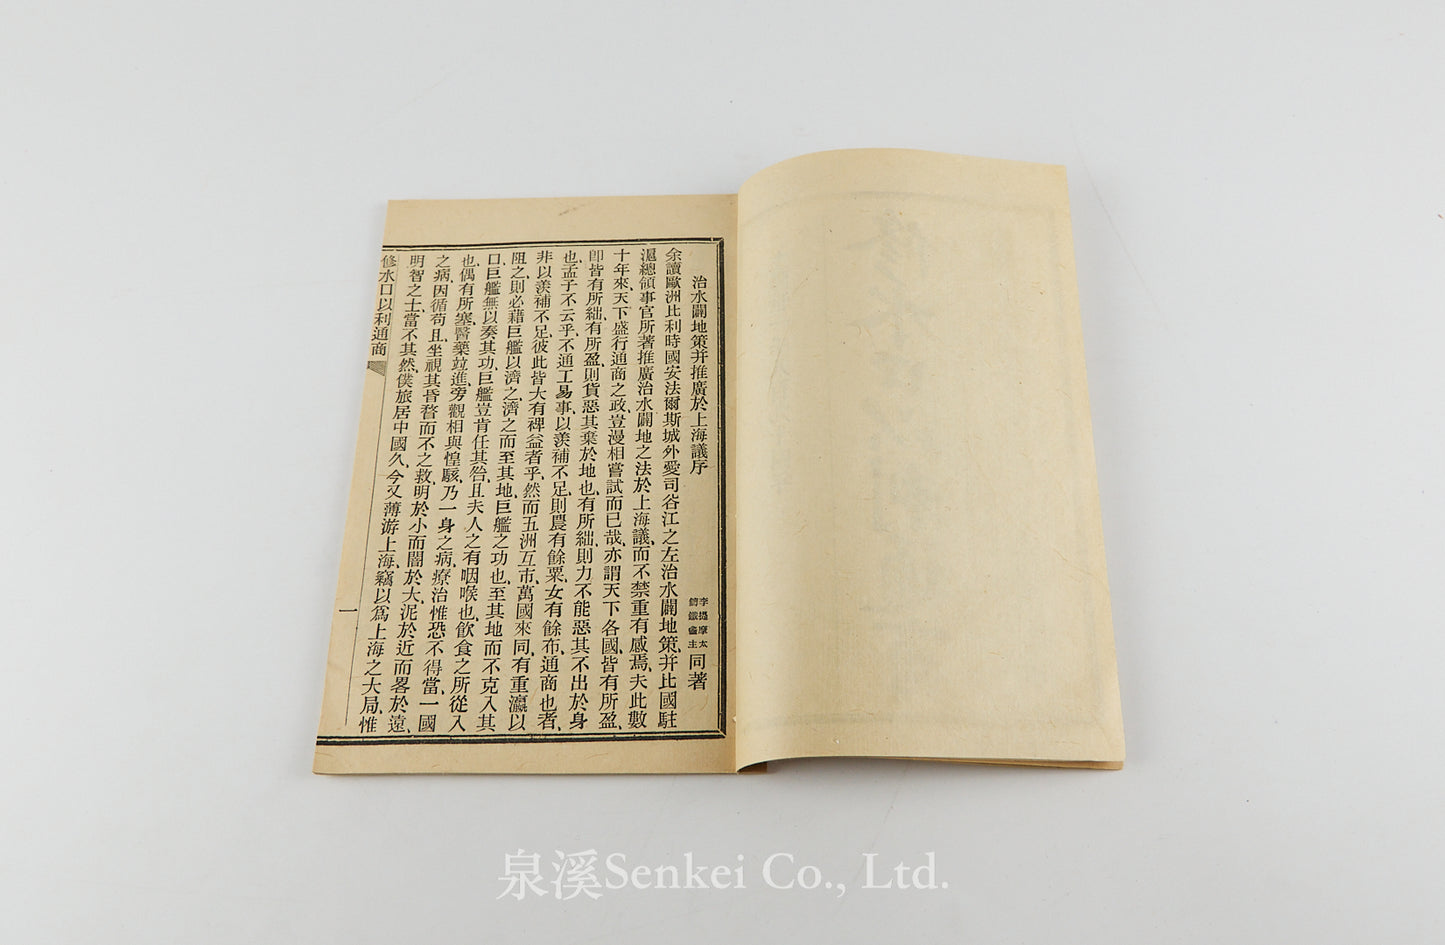 治水闢地策并推廣於上海議序
李提摩太
鑄鐵盦主
同著
余讀歐洲比利時國安法爾斯城外愛司谷江之左治水闢地策并比國駐
滬總領事官所著推廣治水闢地之法於上海議而不禁重有感焉夫此數
十年來天下盛行通商之政豈漫相嘗試而已哉亦謂天下各國皆有所盈
卽皆有所絀有所盈則貨惡其棄於地也有所絀則力不能惡其不出於身
也孟子不云乎不通工易事以羡補不足則農有餘粟女有餘布通商也者
非以羡補不足彼此皆大有裨益者乎然而五洲互市萬國來同有重瀛以
阻之則必藉巨艦以濟之濟之而至其地巨艦之功也至其地而不克入其
口巨艦無以奏其功巨艦豈肯任其咎且夫人之有咽喉也飮食之所從入
也偶有所塞醫藥竝進旁觀相與惶駭乃一身之病療治惟恐不得當一國
之病因循苟且坐視其昏瞀而不之救明於小而闇於大泥於近而畧於遠
明智之士當不其然僕旅居中國久今又薄游上海竊以爲上海之大局惟
修水口以利通商
一
泉溪Senkei Co., Ltd.